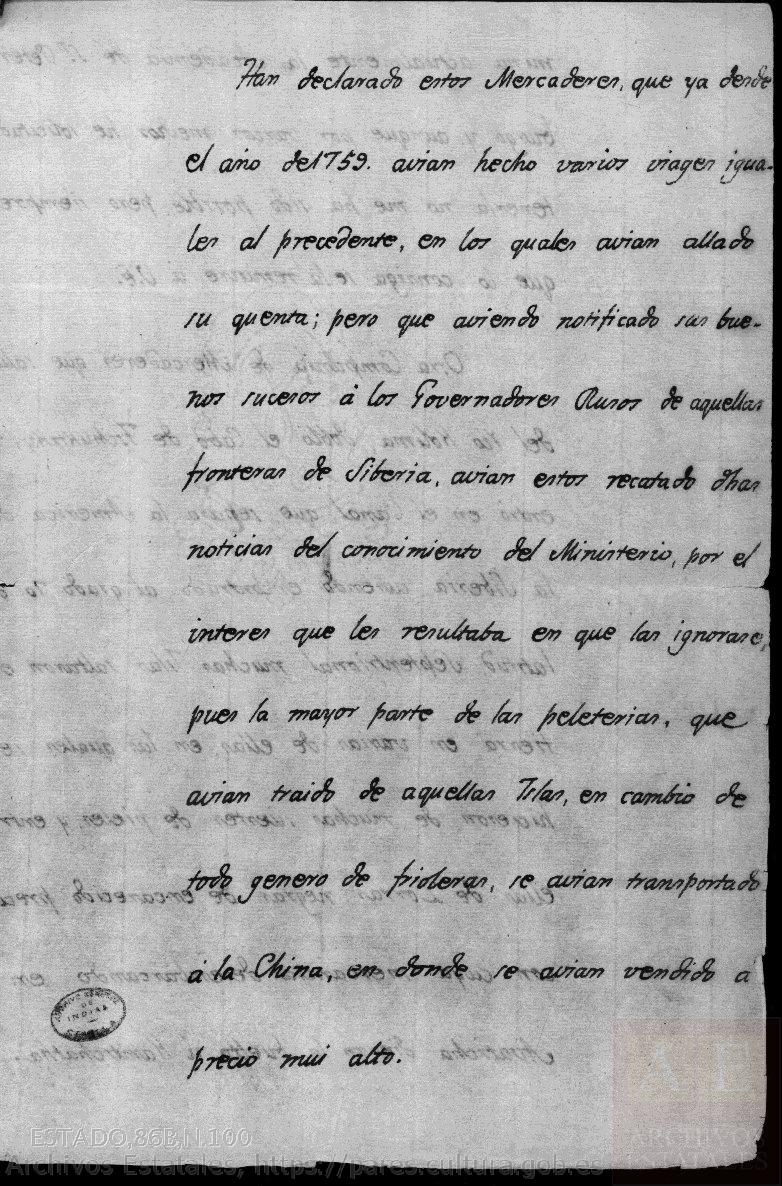 Han declarado estos Mercaderes, que ya desde
el año de 1759. avian hecho varios viages igua-
les al precedente, en los quales avian allado
su quenta; pero que aviendo notificado sus bue-
nos sucesos à los Governadores Rusos de aquellas
fronteras de Siberia, avian estos recatado dhas
noticias del conocimiento del Ministerio, por el
interes que les resultaba en que las ignorase,
pues la mayor parte de las peleterias, que
avian traido de aquellas Islas, en cambio de
todo genero de frioleras, se avian transportado
à la China, en donde se avian vendido a
precio mui alto.
ARCHIVO GENERAL
DE
INDIAS
SEVILLA
AE
ARCHIVOS
ESTATALES
ESTADO,86B,N.100
Archivos Estatales, https://pares.cultura.gob.es